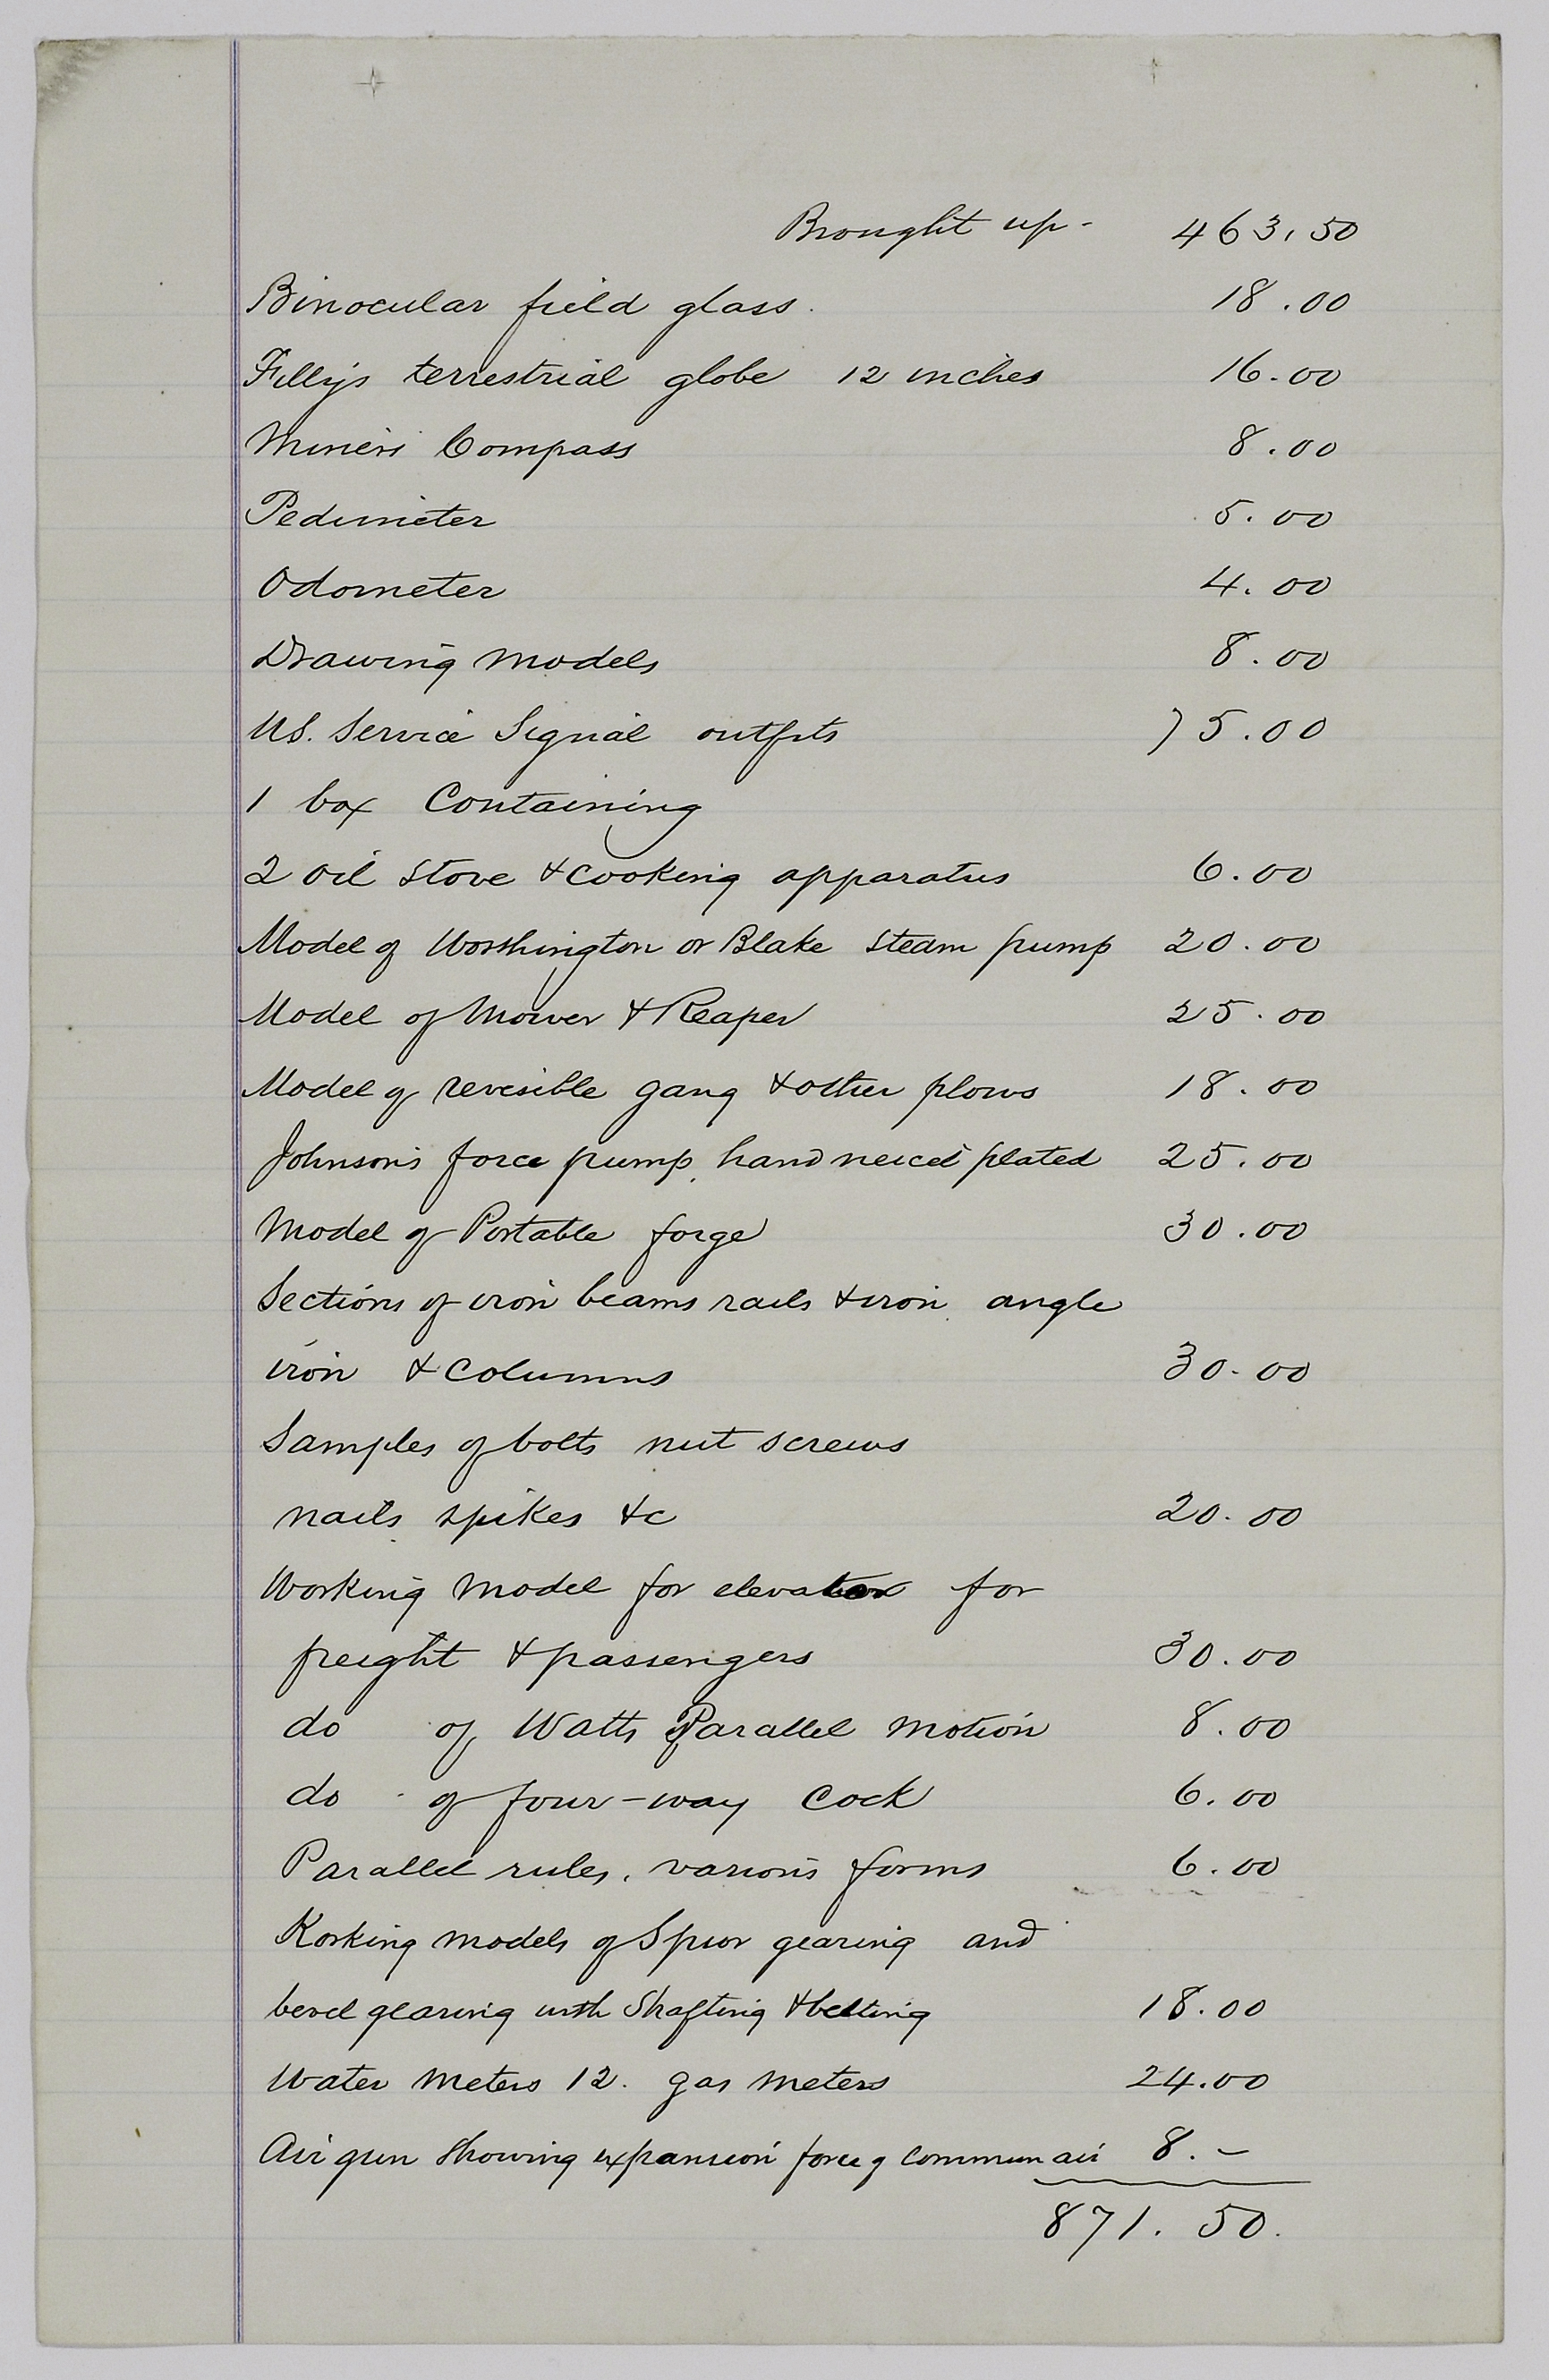 Brought up - 463.50
Binocular field glass. 18.00
Filly's terrestrial globe 12 inches 16.00
Miner's Compass 8.00
Pedimeter 5.00
Odometer 4.00
Drawing models 8.00
US. Service Signal outfits 75.00
1 box Containing
2 Oil Stove & cooking apparatus 6.00
Model of Worshington or Blake Steam pump 20.00
Model of Mower & Reaper 25.00
Model of revesible gang & other plows 18.00
Johnson's force pump, hand plated 25.00
Model of Portable forge 30.00
Sections of iron beams rails & iron angle
iron & columns 30.00
Samples of bolts nut screws
nails spikes &c 20.00
Working model for elevator for
freight & passengers 30.00
do of Watts Parallel motion 8.00
do of four-way Cock 6.00
Parallel rules, various forms 6.00
Korking models of Spur gearing and
bevel gearing with Shafting & belting 18.00
Water meters 12. gas meters 24.00
Air gun Showing expansion force of common air 8.-
871.50.